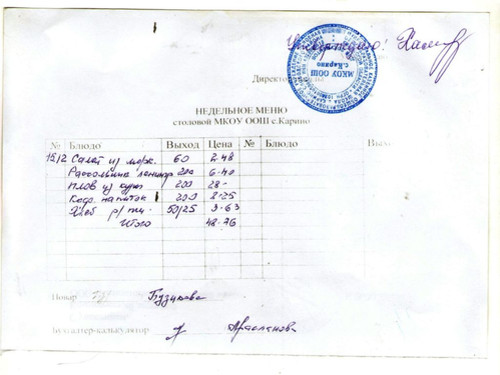 Утверждаю!
МКОУ ООШ
с.Карино
Директор
НЕДЕЛЬНОЕ МЕНЮ
столовой МКОУ ООШ с.Карино
№ Блюдо Выход Цена № Блюдо Выхо
15/2 Салат из морк. 60 2-48
Рассольник ленингр 200 6-40
Плов из кур 200 28-
Коф. напиток 200 2-25
Хлеб р/пш. 50/25 3-63
Итого 42-76
Повар Бузикова
Бухгалтер-калькулятор